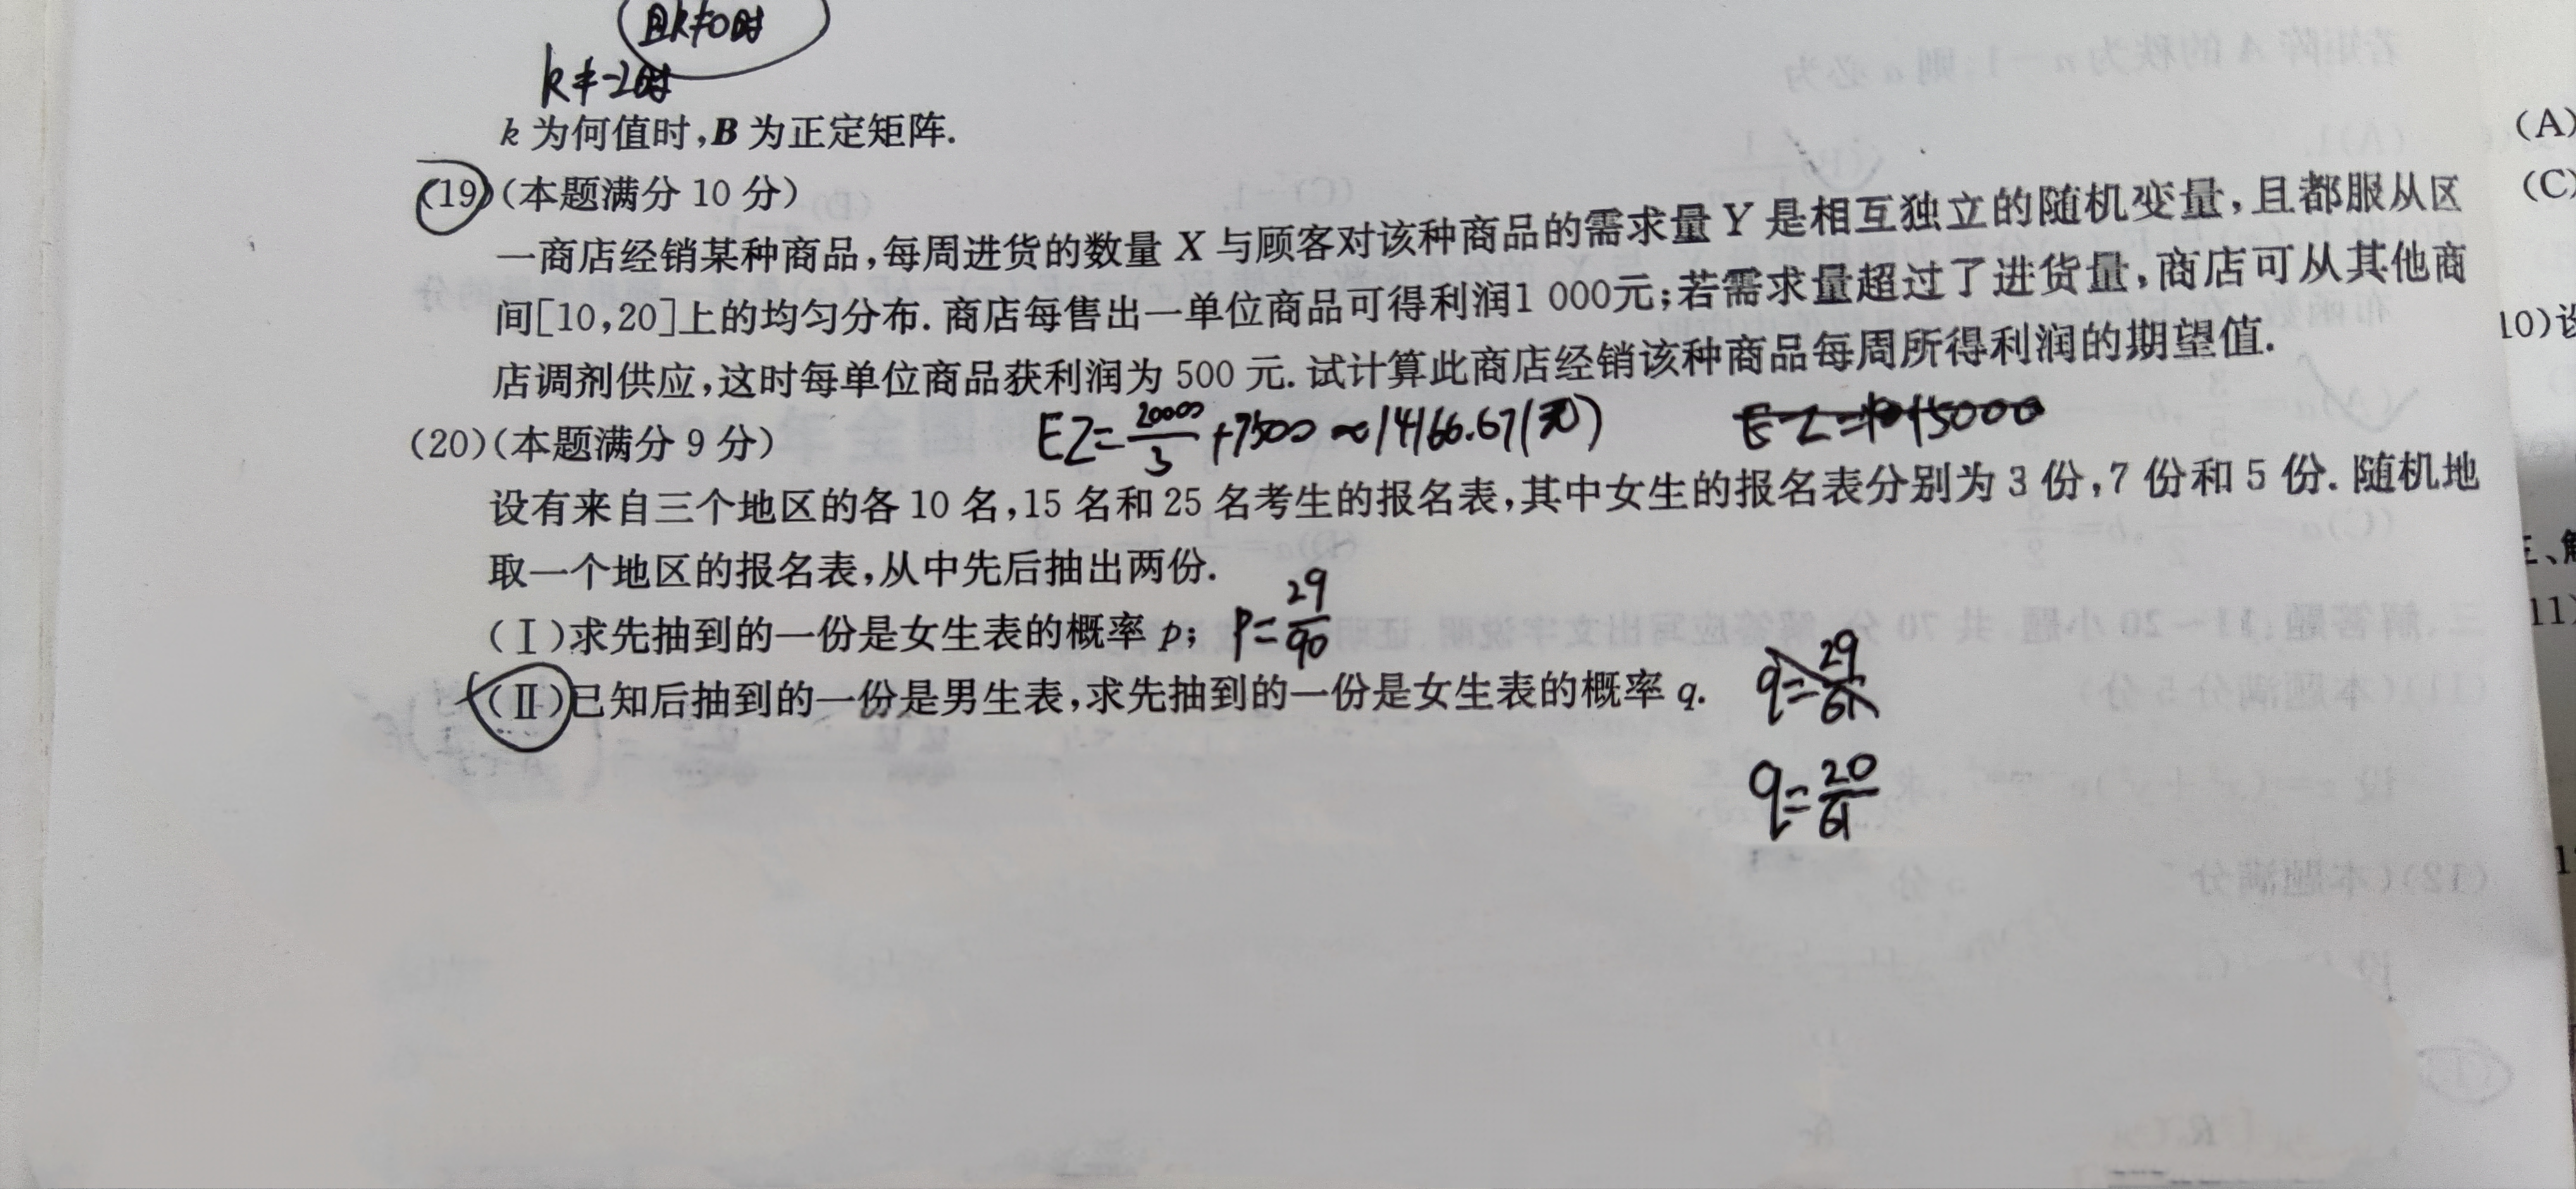 且k≠0时
k≠-2时
k 为何值时,B 为正定矩阵.
(19)(本题满分 10 分)
一商店经销某种商品,每周进货的数量 X 与顾客对该种商品的需求量 Y 是相互独立的随机变量,且都服从区
间[10,20]上的均匀分布. 商店每售出一单位商品可得利润1 000元;若需求量超过了进货量,商店可从其他商
店调剂供应,这时每单位商品获利润为 500 元. 试计算此商店经销该种商品每周所得利润的期望值.
EZ=20000/3+7500≈14166.67(元)
(20)(本题满分 9 分)
设有来自三个地区的各 10 名,15 名和 25 名考生的报名表,其中女生的报名表分别为 3 份,7 份和 5 份. 随机地
取一个地区的报名表,从中先后抽出两份.
(Ⅰ)求先抽到的一份是女生表的概率 p; P=29/90
(Ⅱ)已知后抽到的一份是男生表,求先抽到的一份是女生表的概率 q. q=29/61
q=20/61
(A)
(C)
10)设
三、解
11)